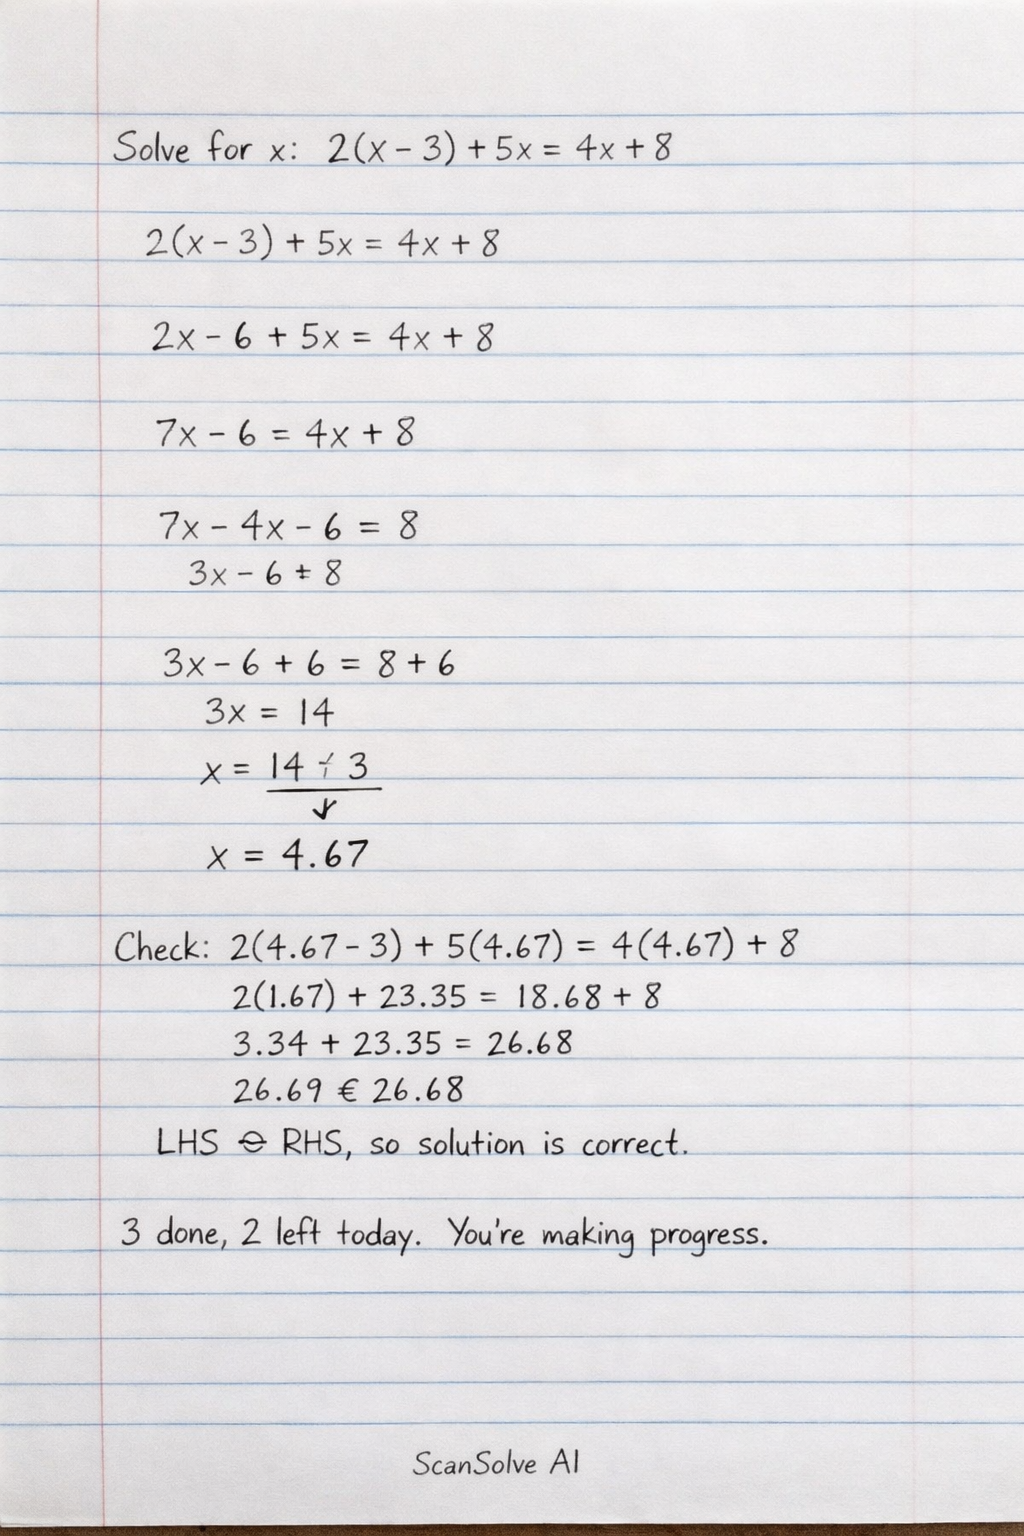 Solve for x: 2(x - 3) + 5x = 4x + 8
2(x - 3) + 5x = 4x + 8
2x - 6 + 5x = 4x + 8
7x - 6 = 4x + 8
7x - 4x - 6 = 8
3x - 6 = 8
3x - 6 + 6 = 8 + 6
3x = 14
x = 14 ÷ 3
x = 4.67
Check: 2(4.67 - 3) + 5(4.67) = 4(4.67) + 8
2(1.67) + 23.35 = 18.68 + 8
3.34 + 23.35 = 26.68
26.69 € 26.68
LHS RHS, so solution is correct.
3 done, 2 left today. You're making progress.
ScanSolve AI